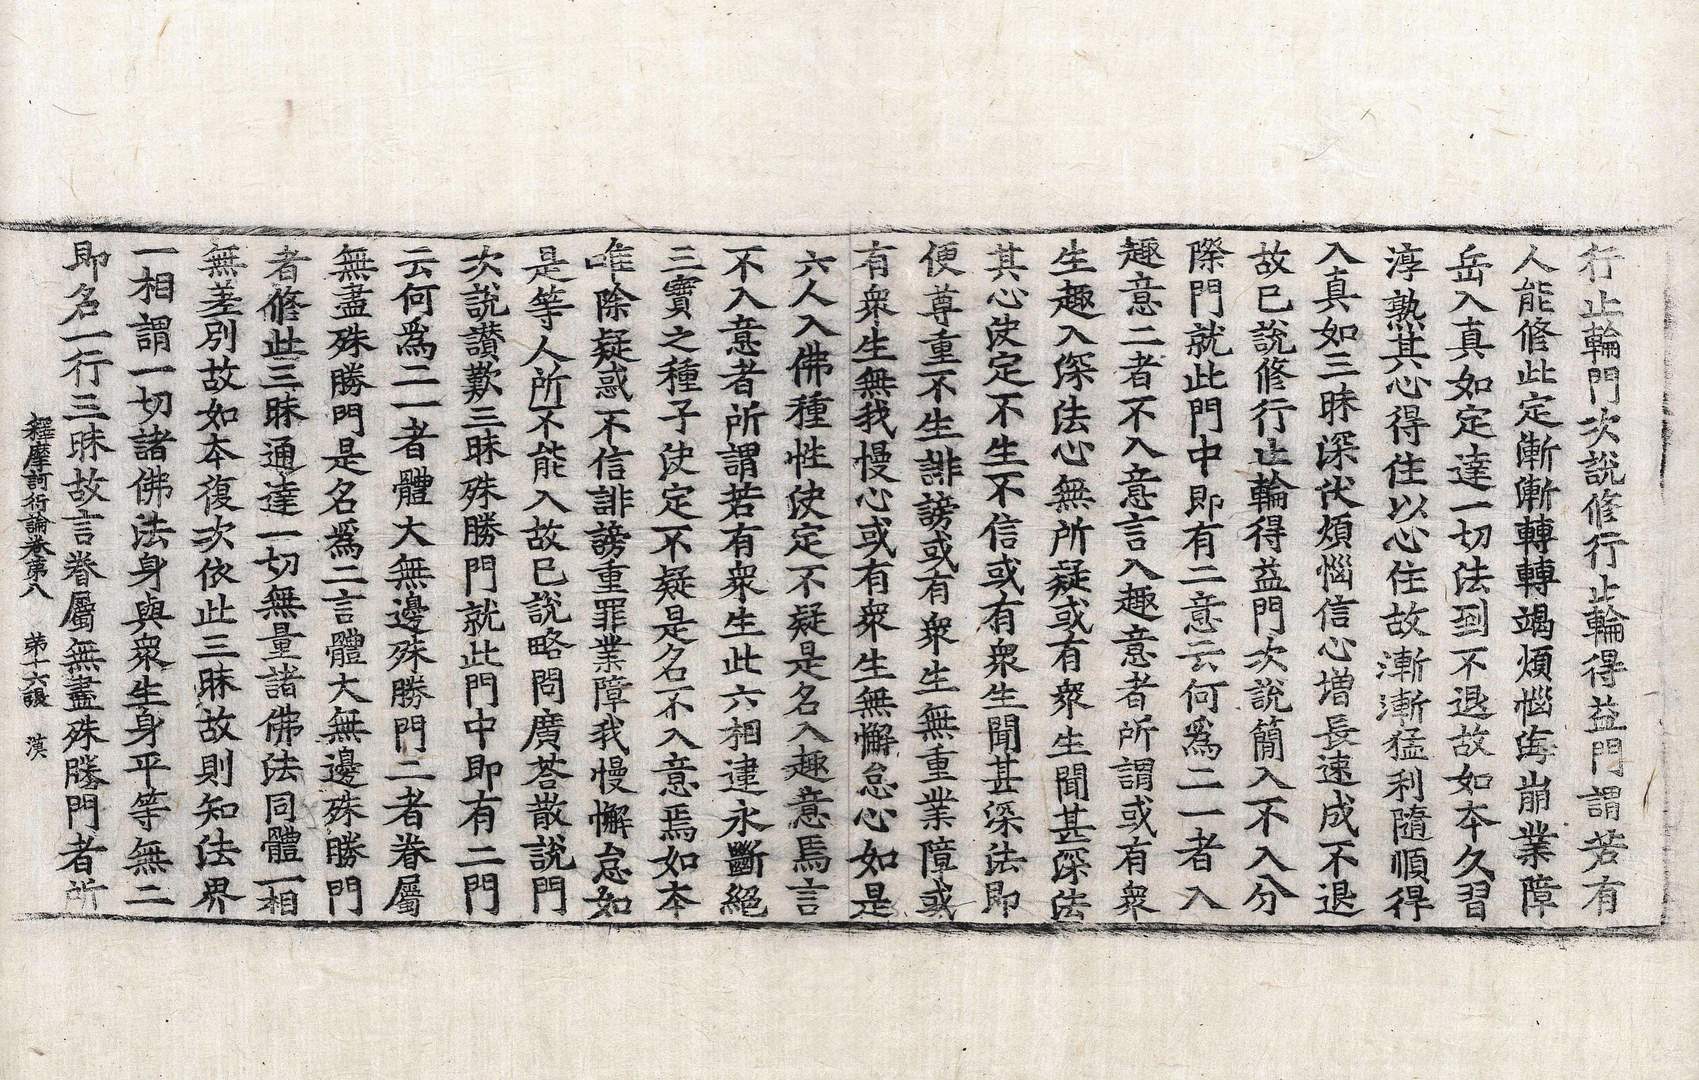 行止輪門次說修行止輪得益門謂若有
人能修此定漸漸轉轉竭煩惱海崩業障
岳入真如定達一切法到不退故如夲久習
淳熟其心得住以心住故漸漸猛利隨順得
入真如三昧深伏煩惱信心增長速成不退
故已說修行止輪得益門次說簡入不入分
際門就此門中即有二意云何爲二一者入
趣意二者不入意言入趣意者所謂或有衆
生趣入深法心無所疑或有衆生聞甚深法
其心决定不生不信或有衆生聞甚深法即
便尊重不生誹謗或有衆生無重業障或
有衆生無我慢心或有衆生無懈怠心如是
六人入佛種性决定不疑是名入趣意焉言
不入意者所謂若有衆生此六相違永斷絕
三寶之種子决定不疑是名不入意焉如夲
唯除疑惑不信誹謗重罪業障我慢懈怠如
是等人所不能入故已說略問廣荅散說門
次說讃歎三昧殊勝門就此門中即有二門
云何爲二一者體大無邊殊勝門二者眷屬
無盡殊勝門是名爲二言體大無邊殊勝門
者修此三昧通達一切無量諸佛法同體一相
無差別故如夲復次依此三昧故則知法界
一相謂一切諸佛法身與衆生身平等無二
即名一行三昧故言眷屬無盡殊勝門者所
釋摩訶衍論卷第八　第十六張　漠